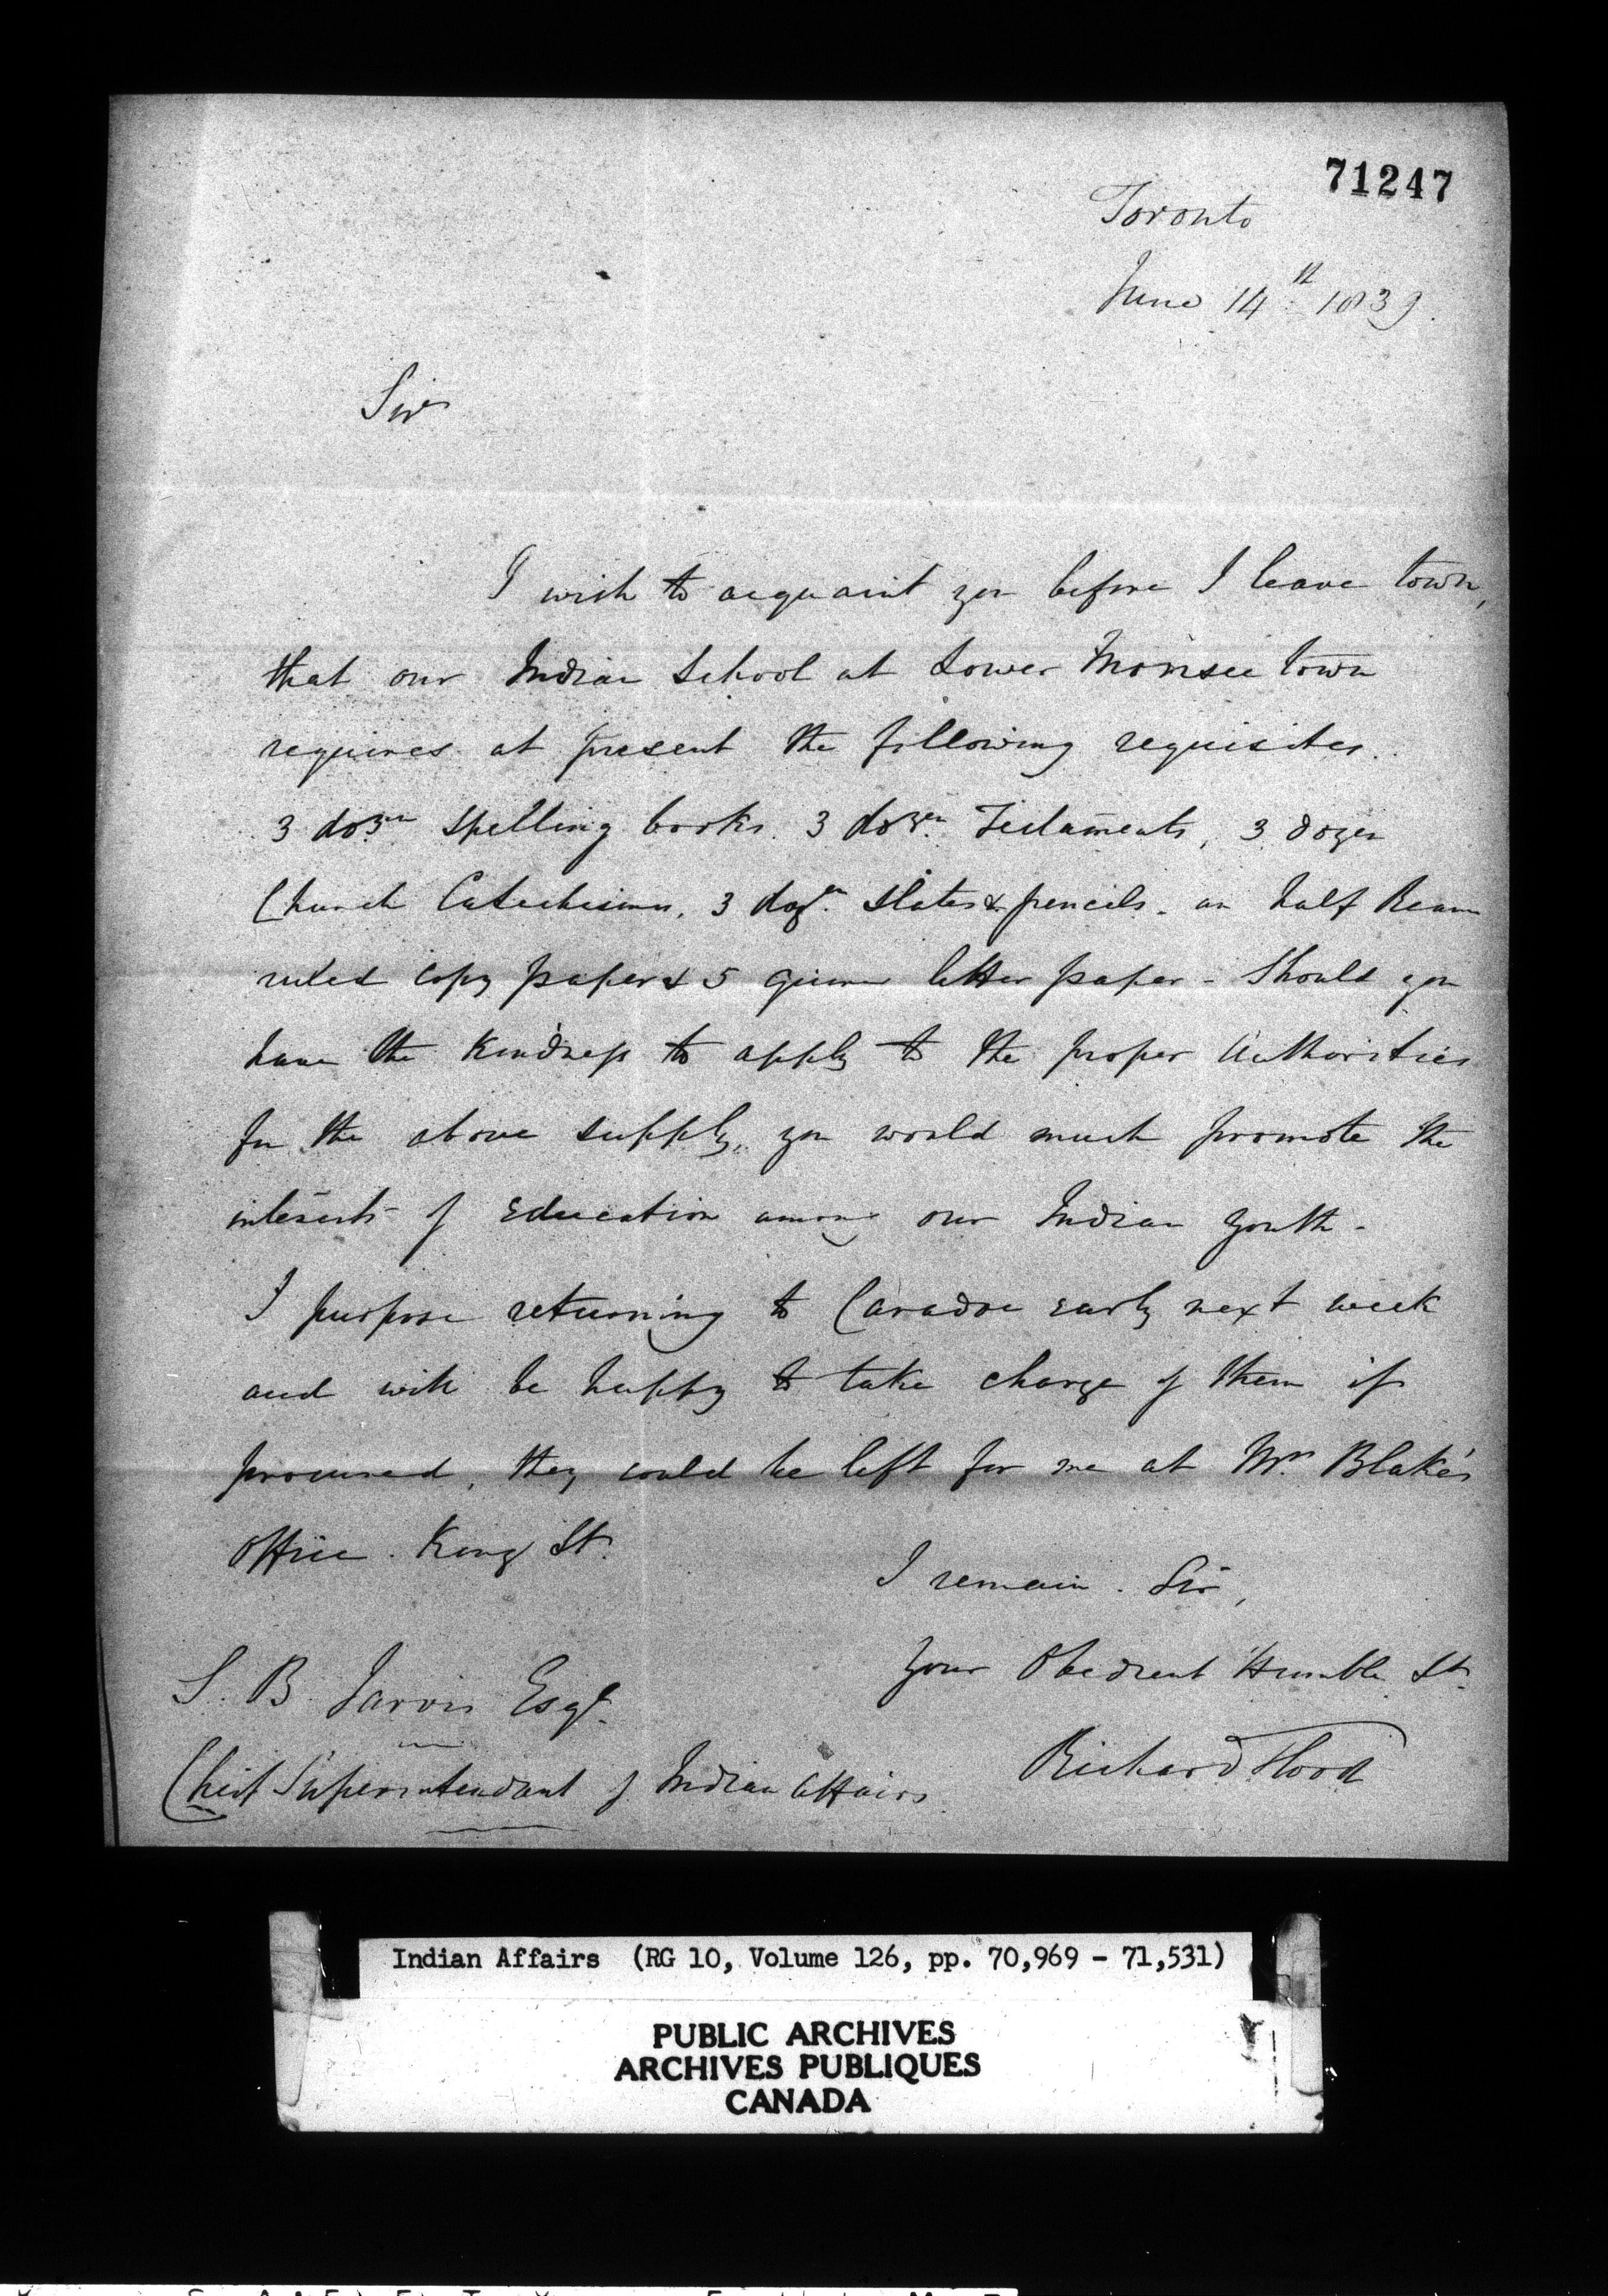 71247
Toronto
June 14th 1839.
Sir
I wish to acquaint you before I leave town,
that our Indian School at Lower Monsee town
requires at present the following requisites.
3 dozn Spelling books. 3 dozen Testaments, 3 dozen
Church Catechisms, 3 dozn Slates & pencils. an half Ream
ruled copy paper & 5 Quires letter paper - Should you
have the kindness to apply to the proper Authorities
for the above supply, you would much promote the
interests of Education among our Indian youth -
I purpose returning to Caradoc early next week
and will be happy to take charge of them if
procured, they could be left for me at Mr Blake's
Office. King St.
I remain. Sir,
Your Obedient Humble St.
Richard Flood
S. B. Jarvis Esqr.
Chief Superintendant of Indian Affairs
Indian Affairs (RG 10, Volume 126, pp. 70,969 - 71,531)
PUBLIC ARCHIVES
ARCHIVES PUBLIQUES
CANADA